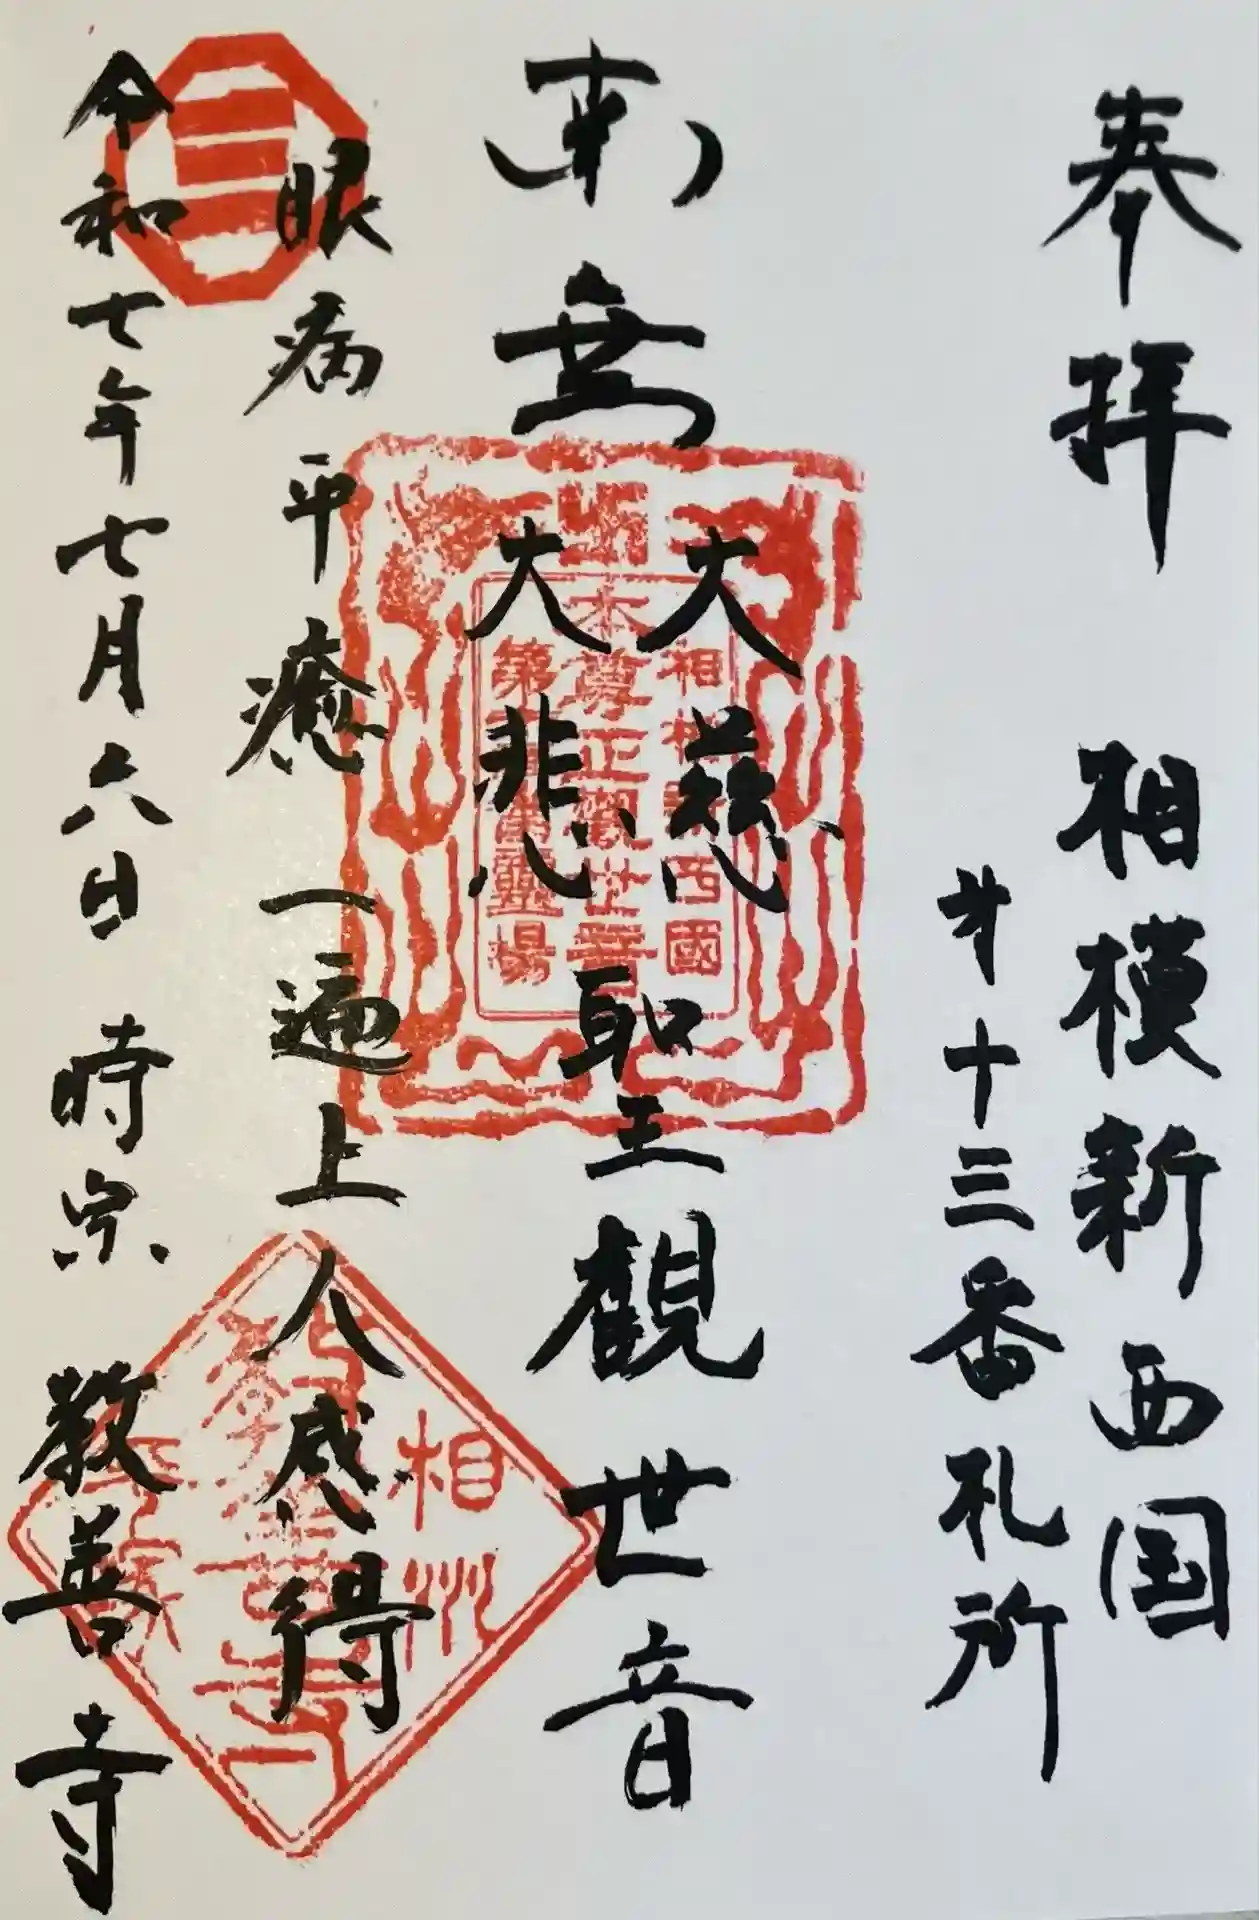 奉拝 相模新西国
才十三番札所
南無 大慈
大悲 聖観世音
眼病平癒 一遍上人感得
令和七年七月六日 時宗 教善寺
相模新西國
本尊正觀世音
霊場
相州